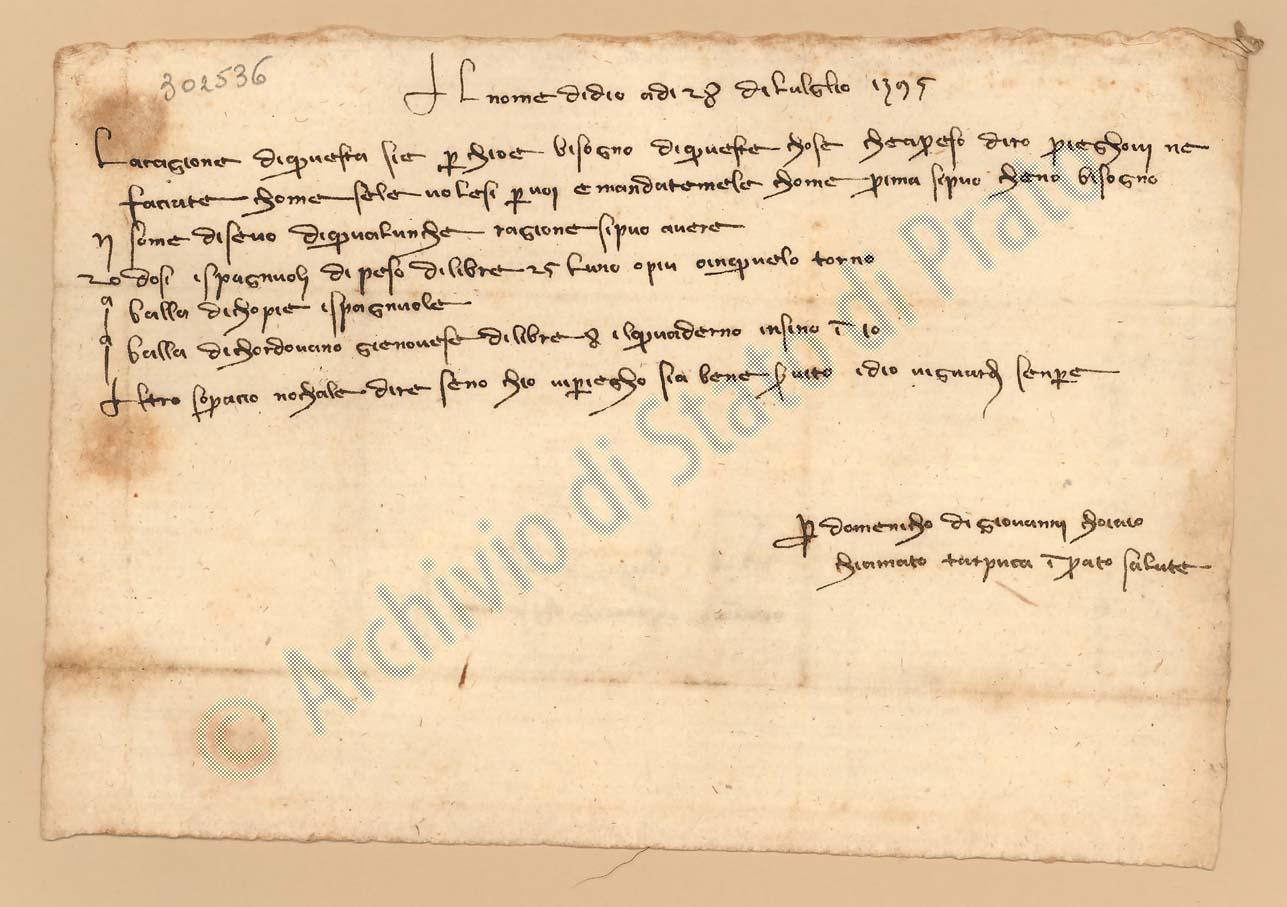 302536
Al nome di dio adi 28 di lulglio 1395
La cagione di questa sie per chio e bisogno di queste chose che apreso diro prieghovi ne
faciate chome sele volesi per voi e mandatemele chome prima sipuo cheno bisogno
some di sevo di qualunche ragione sipuo avere
20 dosi ispagnuoli di peso di libre 25 luno opiu oinquelo torno
1a balla di chopie ispagnuole
1a balla di chordovano gienovese di libre 8 il quaderno insino i 10
Altro sopracio nochale dire seno chio vi priegho sia bene servito idio vi guardi senpre
per domenicho di giovanni choiaio
chiamato i prato salute
© Archivio di Stato di Prato